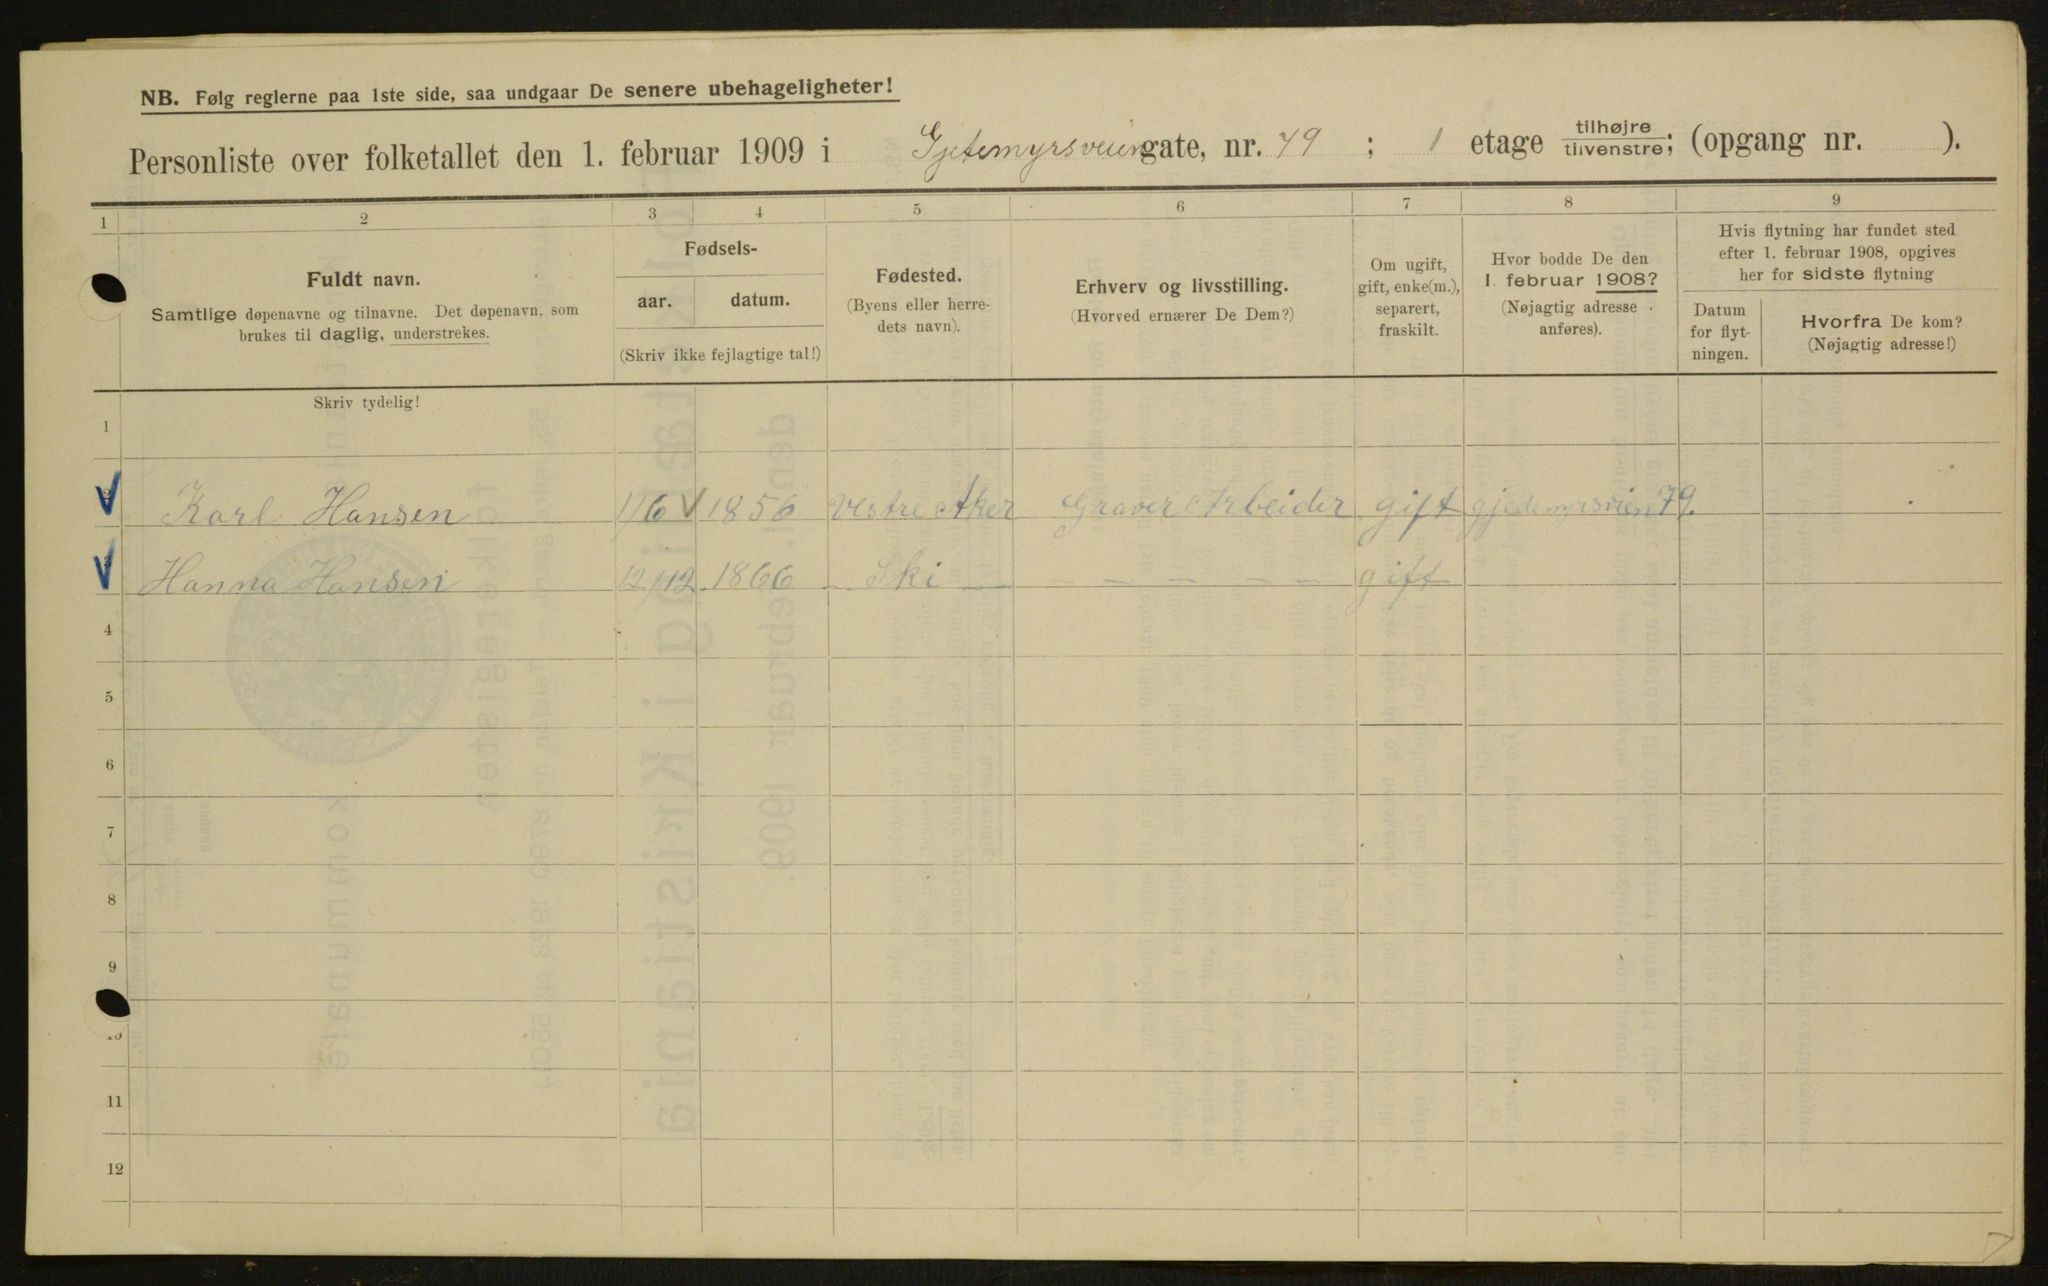 NB. Følg reglerne paa 1ste side, saa undgaar De senere ubehageligheter!
Personliste over folketallet den 1. februar 1909 i Gjetemyrsveien gate, nr. 79 ; 1 etage tilhøjre tilvenstre; (opgang nr. ).
1 2 3 4 5 6 7 8 9
Fuldt navn.
Samtlige døpenavne og tilnavne. Det døpenavn, som
brukes til daglig, understrekes.
Fødsels-
aar. datum.
(Skriv ikke fejlagtige tal!)
Fødested.
(Byens eller herre-
dets navn).
Erhverv og livsstilling.
(Hvorved ernærer De Dem?)
Om ugift,
gift, enke(m.),
separert,
fraskilt.
Hvor bodde De den
1. februar 1908?
(Nøjagtig adresse
anføres).
Hvis flytning har fundet sted
efter 1. februar 1908, opgives
her for sidste flytning
Datum
for flyt-
ningen.
Hvorfra De kom?
(Nøjagtig adresse!)
Skriv tydelig!
1
2 Karl Hansen 1/6 1856 Vestre Aker Graver Arbeider gift gjedemyrsvien 79.
3 Hanna Hansen 12/12 1866 – Ski – – – – – – gift
4
5
6
7
8
9
10
11
12